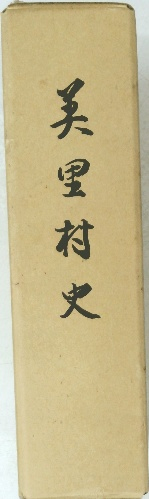 美里村史